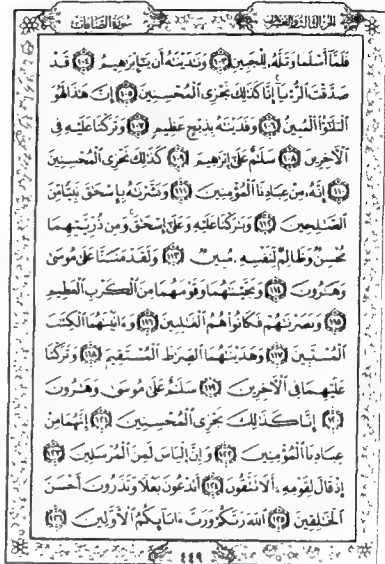 الجزء الثالث والعشرون سورة الصافات
فَلَمَّآ أَسْلَمَا وَتَلَّهُۥ لِلْجَبِينِ ١٠٣ وَنَٰدَيْنَٰهُ أَن يَٰٓإِبْرَٰهِيمُ ١٠٤ قَدْ
صَدَّقْتَ ٱلرُّءْيَآ إِنَّا كَذَٰلِكَ نَجْزِى ٱلْمُحْسِنِينَ ١٠٥ إِنَّ هَٰذَا لَهُوَ
ٱلْبَلَٰٓؤُا۟ ٱلْمُبِينُ ١٠٦ وَفَدَيْنَٰهُ بِذِبْحٍ عَظِيمٍ ١٠٧ وَتَرَكْنَا عَلَيْهِ فِى
ٱلْءَاخِرِينَ ١٠٨ سَلَٰمٌ عَلَىٰٓ إِبْرَٰهِيمَ ١٠٩ كَذَٰلِكَ نَجْزِى ٱلْمُحْسِنِينَ
١١٠ إِنَّهُۥ مِنْ عِبَادِنَا ٱلْمُؤْمِنِينَ ١١١ وَبَشَّرْنَٰهُ بِإِسْحَٰقَ نَبِيًّا مِّنَ
ٱلصَّٰلِحِينَ ١١٢ وَبَٰرَكْنَا عَلَيْهِ وَعَلَىٰٓ إِسْحَٰقَ وَمِن ذُرِّيَّتِهِمَا
مُحْسِنٌ وَظَالِمٌ لِّنَفْسِهِۦ مُبِينٌ ١١٣ وَلَقَدْ مَنَنَّا عَلَىٰ مُوسَىٰ
وَهَٰرُونَ ١١٤ وَنَجَّيْنَٰهُمَا وَقَوْمَهُمَا مِنَ ٱلْكَرْبِ ٱلْعَظِيمِ
١١٥ وَنَصَرْنَٰهُمْ فَكَانُوا۟ هُمُ ٱلْغَٰلِبِينَ ١١٦ وَءَاتَيْنَٰهُمَا ٱلْكِتَٰبَ
ٱلْمُسْتَبِينَ ١١٧ وَهَدَيْنَٰهُمَا ٱلصِّرَٰطَ ٱلْمُسْتَقِيمَ ١١٨ وَتَرَكْنَا
عَلَيْهِمَا فِى ٱلْءَاخِرِينَ ١١٩ سَلَٰمٌ عَلَىٰ مُوسَىٰ وَهَٰرُونَ
١٢٠ إِنَّا كَذَٰلِكَ نَجْزِى ٱلْمُحْسِنِينَ ١٢١ إِنَّهُمَا مِنْ
عِبَادِنَا ٱلْمُؤْمِنِينَ ١٢٢ وَإِنَّ إِلْيَاسَ لَمِنَ ٱلْمُرْسَلِينَ ١٢٣
إِذْ قَالَ لِقَوْمِهِۦٓ أَلَا تَتَّقُونَ ١٢٤ أَتَدْعُونَ بَعْلًا وَتَذَرُونَ أَحْسَنَ
ٱلْخَٰلِقِينَ ١٢٥ ٱللَّهَ رَبَّكُمْ وَرَبَّ ءَابَآئِكُمُ ٱلْأَوَّلِينَ ١٢٦
٤٤٩